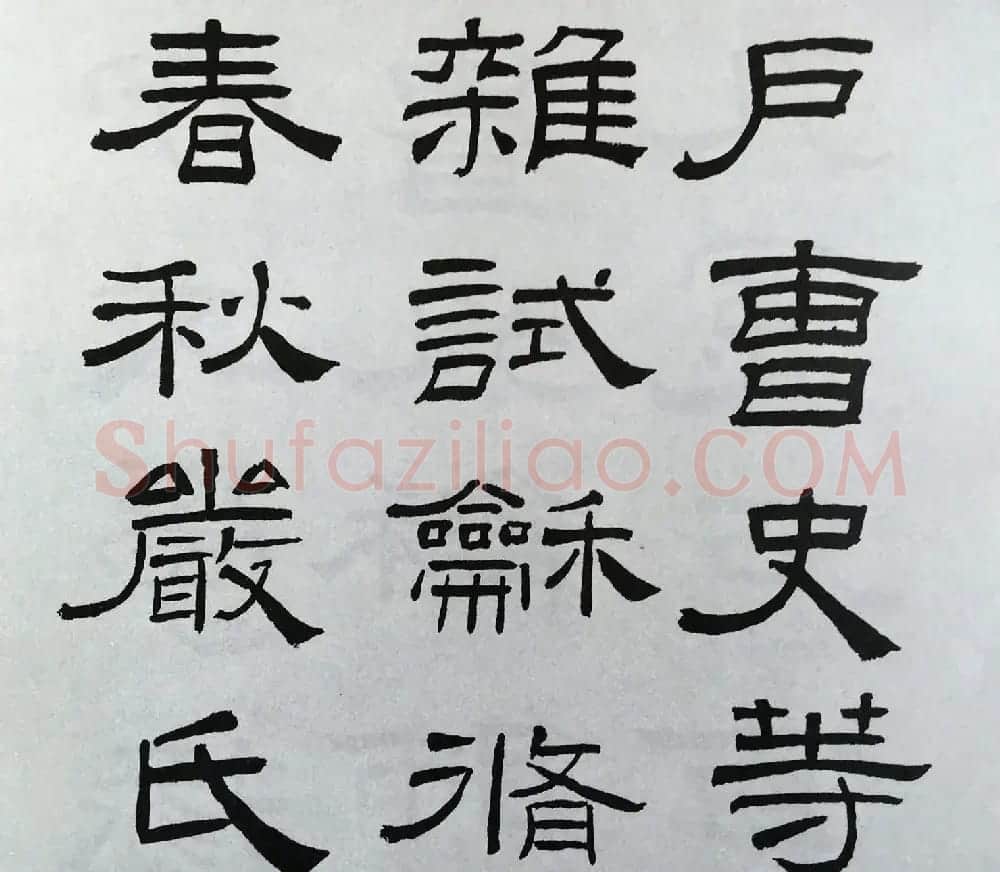 戶曹史等
雜試龢脩
春秋嚴氏
Shufaziliao.COM